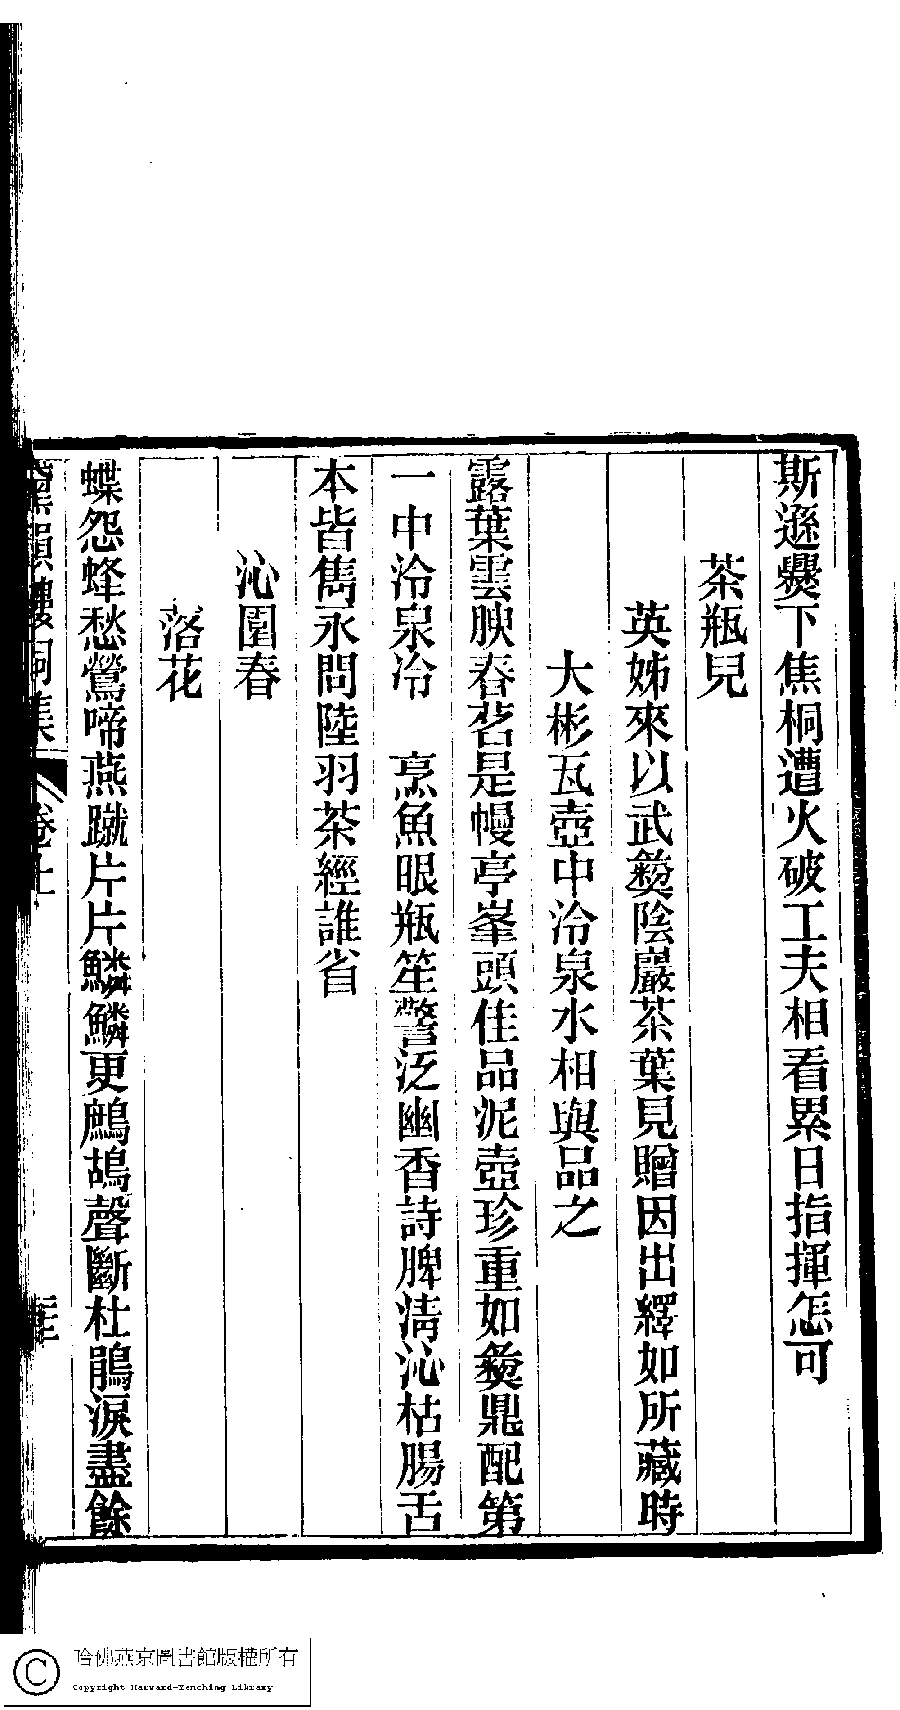 斯遜爨下焦桐遭火破工夫相看累日指揮怎可
茶瓶兒
英姊來以武彜陰巖茶葉見贈因出繹如所藏時
大彬瓦壺中泠泉水相與品之
露葉雲腴春茗是幔亭峯頭佳品泥壺珍重如彜鼎配第
一中泠泉冷　烹魚眼瓶笙警泛幽香詩脾淸沁枯腸舌
本皆雋永問陸羽茶經誰省
沁園春
落花
蝶怨蜂愁鶯啼燕蹴片片鱗鱗更鷓鴣聲斷杜鵑淚盡餘
詞集 卷上
哈佛燕京圖書館版權所有
Copyright Harvard-Yenching Library